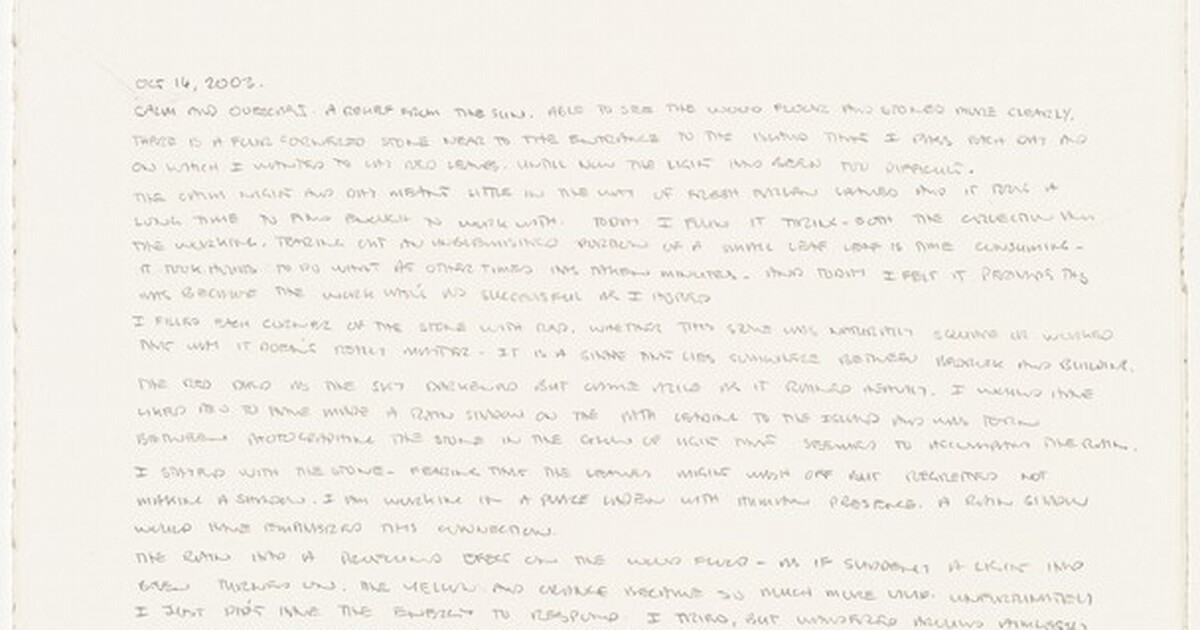 OCT 14, 2003.
CALM AND OVERCAST. A RELIEF FROM THE SUN. ABLE TO SEE THE WOOD FLOOR AND STONES MORE CLEARLY.
THERE IS A FOUR CORNERED STONE NEAR TO THE ENTRANCE TO THE ISLAND THAT I PASS EACH DAY AND
ON WHICH I WANTED TO LAY RED LEAVES. UNTIL NOW THE LIGHT HAD BEEN TOO DIFFICULT.
THE CALM NIGHT AND DAY MEANT LITTLE IN THE WAY OF FRESH FALLEN LEAVES AND IT TOOK A
LONG TIME TO FIND ENOUGH TO WORK WITH. TODAY I FOUND IT TIRING - BOTH THE COLLECTING AND
THE WORKING. TEARING OUT AN UNBLEMISHED PORTION OF A SMALL LEAF LEAF IS TIME CONSUMING -
IT TOOK HOURS TO DO WHAT AT OTHER TIMES HAS TAKEN MINUTES - AND TODAY I FELT IT PERHAPS THIS
WAS BECAUSE THE WORK WASN'T AS SUCCESSFUL AS I HOPED
I FILLED EACH CORNER OF THE STONE WITH RED. WHETHER THIS STONE WAS NATURALLY SQUARE OR WORKED
THAT WAY IT DOESN'T REALLY MATTER - IT IS A STONE THAT LIES SOMEWHERE BETWEEN BEDROCK AND BUILDING.
THE RED DIED AS THE SKY DARKENED BUT CAME ALIVE AS IT RAINED HEAVILY. I WOULD HAVE
LIKED TO HAVE MADE A RAIN SHADOW ON THE PATH LEADING TO THE ISLAND AND WAS TORN
BETWEEN PHOTOGRAPHING THE STONE IN THE LIGHT THAT SEEMED TO ACCOMPANY THE RAIN.
I STAYED WITH THE STONE - FEARING THAT THE LEAVES MIGHT WASH OFF BUT REGRETTED NOT
MAKING A SHADOW. I AM WORKING IN A PLACE LADEN WITH HUMAN PRESENCE. A RAIN SHADOW
WOULD HAVE EMPHASIZED THIS CONNECTION.
THE RAIN HAD A EFFECT ON THE WOOD FLOOR - AS IF SUDDENLY A LIGHT HAD
BEEN TURNED ON. THE YELLOW AND ORANGE BECAME SO MUCH MORE VIVID. UNFORTUNATELY
I JUST DIDN'T HAVE THE ENERGY TO RESPOND. I TRIED, BUT WANDERED AROUND AIMLESSLY